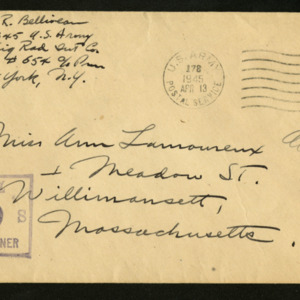 R. Belliveau
U.S. Army
Sig Rad Int Co.
654 c/o P.m
York, N.Y.
U.S. ARMY
178
1945
APR 13
POSTAL SERVICE
Miss Ann Lamoureux
1 Meadow St.
Willimansett,
Massachusetts.
S
NER